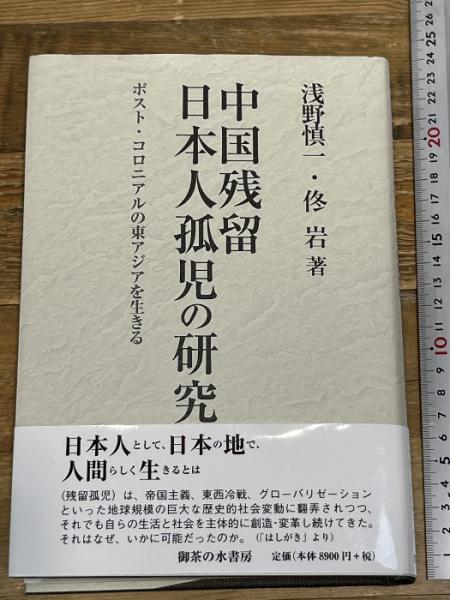 浅野慎一・佟 岩 著
中国残留
日本人孤児の研究
ポスト・コロニアルの東アジアを生きる
日本人として、日本の地で、
人間らしく生きるとは
〈残留孤児〉は、帝国主義、東西冷戦、グローバリゼーション
といった地球規模の巨大な歴史的社会変動に翻弄されつつ、
それでも自らの生活と社会を主体的に創造・変革し続けてきた。
それはなぜ、いかに可能だったのか。（「はしがき」より）
御茶の水書房 定価（本体8900円＋税）
1
2
3
4
5
6
7
8
9
10
11
12
13
14
15
16
17
18
19
20
21
22
23
24
25
26